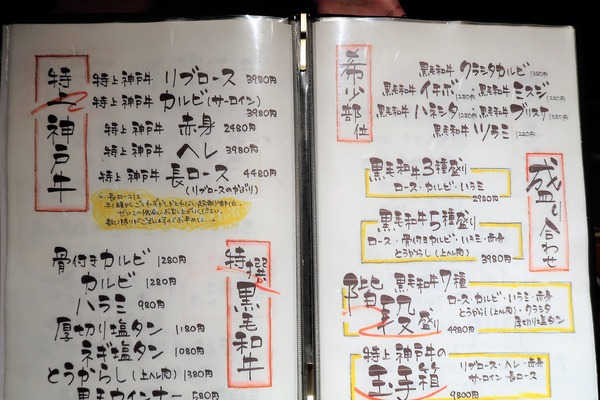 特上神戸牛
特上神戸牛 リブロース 3980円
特上神戸牛 カルビ(サーロイン) 3980円
特上神戸牛 赤身 2480円
特上神戸牛 ヘレ 3980円
特上神戸牛 長ロース 4480円
(リブロースのかぶり)
※長ロースは
特撰黒毛和牛
骨付きカルビ 1280円
カルビ 1280円
ハラミ 980円
厚切り塩タン 1180円
ネギ塩タン 1080円
とうがらし(上ヘレ肉) 1380円
黒毛ウインナー 580円
希少部位
黒毛和牛 クラシタカルビ 1280円
黒毛和牛 イチボ 1280円 黒毛和牛 ミスジ 1280円
黒毛和牛 ハネシタ 1280円 黒毛和牛 ブリスケ 1280円
黒毛和牛 ツラミ 1280円
盛り合わせ
黒毛和牛3種盛り
ロース・カルビ・ハラミ
2980円
黒毛和牛5種盛り
ロース・骨付きカルビ・ハラミ・赤身
とうがらし(上ヘレ肉) 3980円
階段盛り 黒毛和牛7種
ロース・カルビ・ハラミ・赤身
とうがらし(上ヘレ肉)・クラシタ
厚切り塩タン
4980円
特上神戸牛の
玉手箱
リブロース・ヘレ・赤身
サーロイン 長ロース
9800円